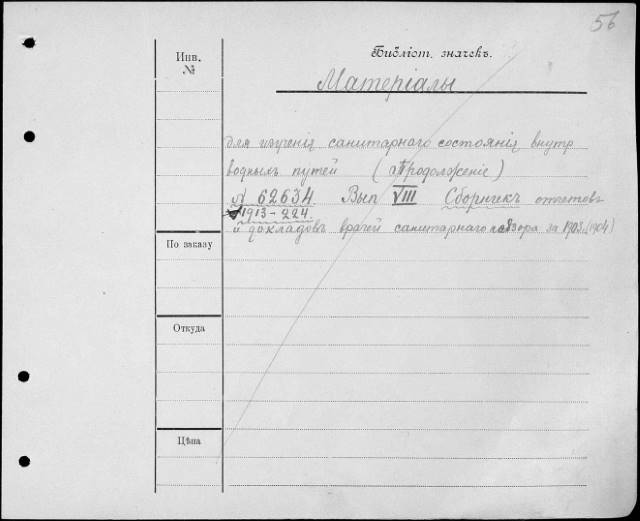 56
Инв.
№
Библіот. значекъ.
Матеріалы
для изученія санитарнаго состоянія внутр
водныхъ путей (Продолженіе)
№ 62634. Вып VIII Сборникъ отчетовъ
1913-224.
и докладовъ врачей санитарнаго надзора за 1903 (1904)
По заказу
Откуда
Цѣна